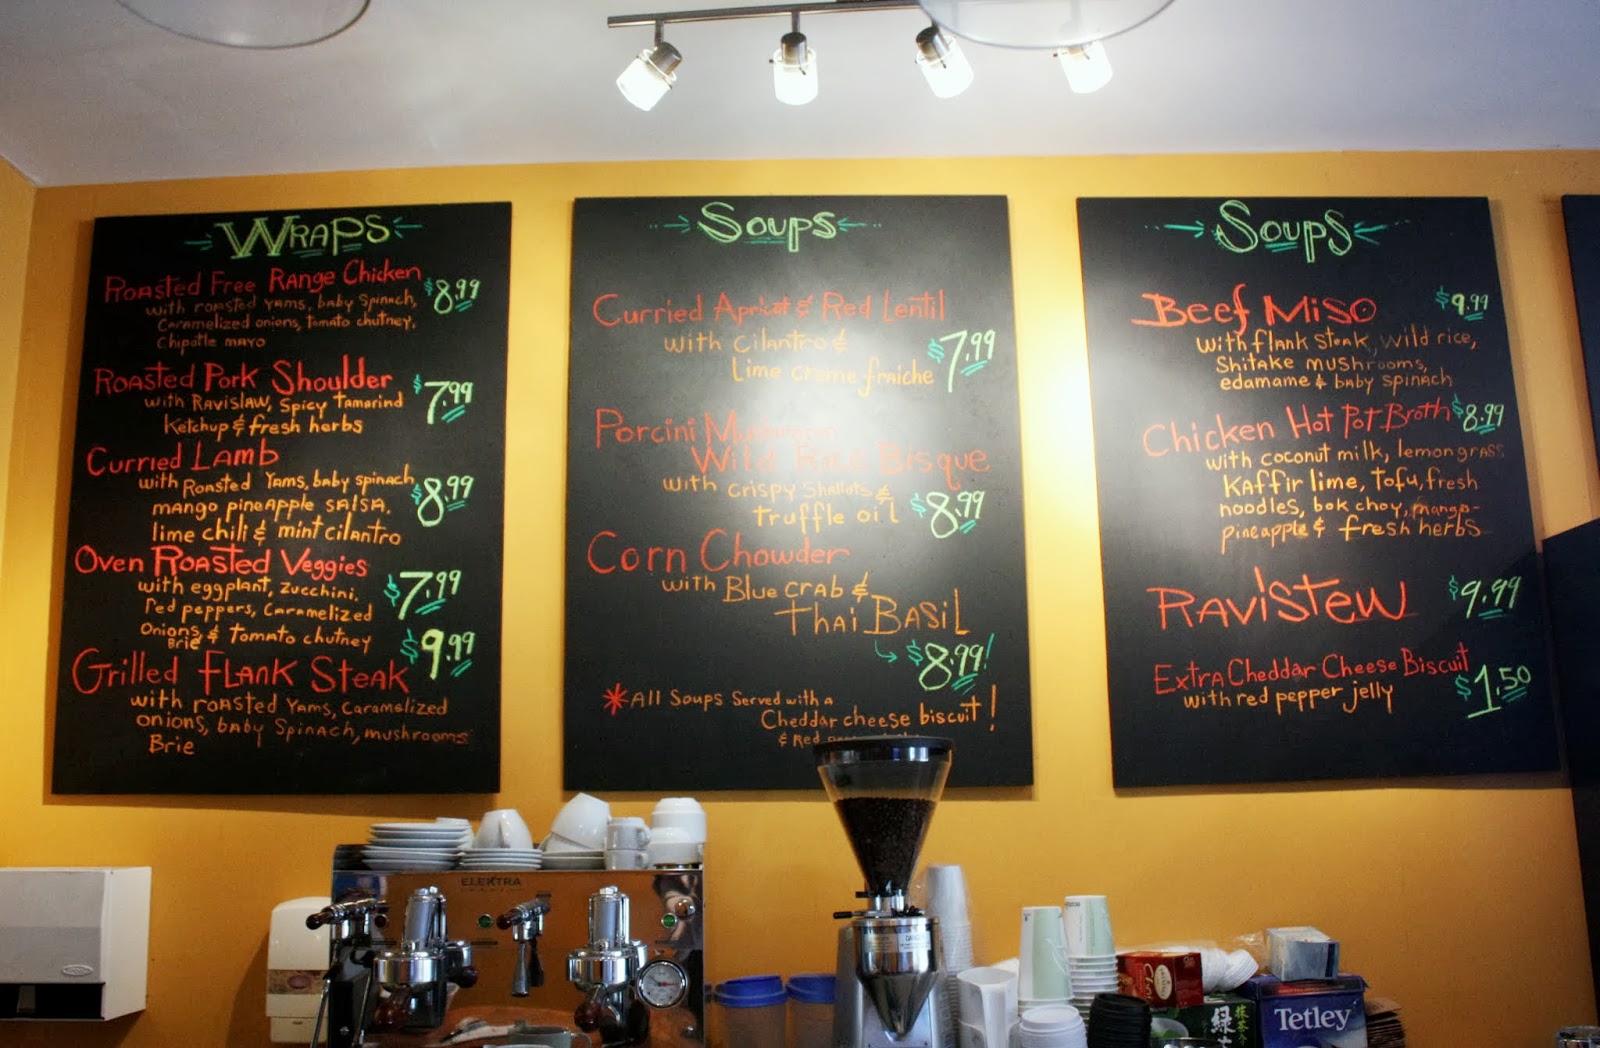 WRAPS
Roasted Free Range Chicken
$8.99
with roasted yams, baby spinach,
Caramelized onions, tomato chutney,
Chipotle mayo
Roasted Pork Shoulder
$7.99
with Ravislaw, Spicy Tamarind
Ketchup & fresh herbs
Curried Lamb
with Roasted Yams, baby spinach
$8.99
mango pineapple salsa,
lime chili & mint cilantro
Oven Roasted Veggies
with eggplant, zucchini,
$7.99
red peppers, caramelized
Onions, & tomato chutney
Brie
$9.99
Grilled Flank Steak
with roasted yams, caramelized
onions, baby spinach, mushrooms
Brie
Soups
Curried Apricot & Red Lentil
with cilantro &
$7.99
lime creme fraiche
Porcini Mushroom
Wild Rice Bisque
with crispy shallots &
truffle oil $8.99
Corn Chowder
with Blue crab &
Thai BASIL
$8.99!
*All Soups Served with a
Cheddar cheese biscuit!
& Red
Soups
Beef Miso $9.99
with flank steak, wild rice,
Shitake mushrooms,
edamame & baby spinach
Chicken Hot Pot Broth $8.99
with coconut milk, lemongrass
Kaffir lime, tofu, fresh
noodles, bok choy, mango-
pineapple & fresh herbs
Ravistew $9.99
Extra Cheddar Cheese Biscuit
with red pepper jelly $1.50
ELEKTRA
Tetley
緑